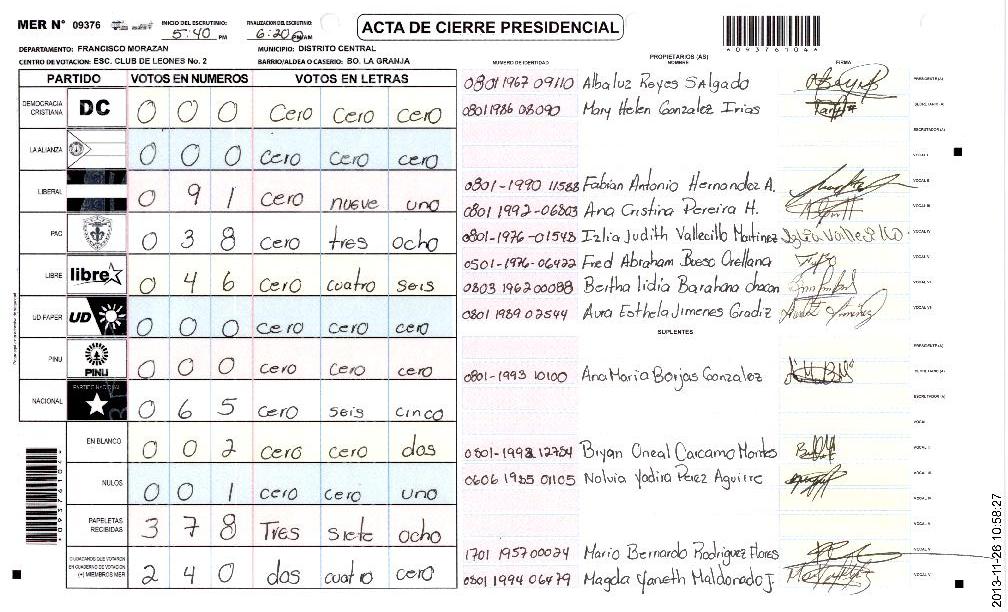 MER N° 09376
INICIO DEL ESCRUTINIO: 5:40 PM
FINALIZACION DEL ESCRUTINIO: 6:20 PM/AM
ACTA DE CIERRE PRESIDENCIAL
*0937610 4*
DEPARTAMENTO: FRANCISCO MORAZAN
MUNICIPIO: DISTRITO CENTRAL
CENTRO DE VOTACION: ESC. CLUB DE LEONES No. 2
BARRIO/ALDEA O CASERIO: BO. LA GRANJA
PARTIDO VOTOS EN NUMEROS VOTOS EN LETRAS
DEMOCRACIA CRISTIANA DC 0 0 0 Cero Cero cero
LA ALIANZA 0 0 0 cero cero cero
LIBERAL 0 9 1 cero nueve uno
PAC 0 3 8 cero tres ocho
LIBRE libre 0 4 6 cero cuatro seis
UD FAPER UD 0 0 0 cero cero cero
PINU PINU 0 0 0 cero cero cero
NACIONAL PARTIDO NACIONAL 0 6 5 cero seis cinco
EN BLANCO 0 0 2 cero cero dos
NULOS 0 0 1 cero cero uno
PAPELETAS RECIBIDAS 3 7 8 Tres siete ocho
CIUDADANOS QUE VOTARON EN CUADERNO DE VOTACION (+) MIEMBROS MER 2 4 0 dos cuatro cero
PROPIETARIOS (AS)
NUMERO DE IDENTIDAD NOMBRE FIRMA
0801 1967 09110 Albaluz Reyes Salgado PRESIDENTE(A)
0801 1986 08090 Mary Helen Gonzalez Irias SECRETARIO(A)
ESCRUTADOR(A)
VOCAL I
0801-1990 11588 Fabian Antonio Hernandez A. VOCAL II
0801 1992-06803 Ana Cristina Pereira H. VOCAL III
0801-1976-01548 Izlia Judith Vallecillo Martinez VOCAL IV
0501-1976-06422 Fred Abraham Bueso Orellana VOCAL V
0803 1962 00088 Bertha lidia Barahona chacon VOCAL VI
0801 1989 07544 Aura Esthela Jimenes Gradiz VOCAL VII
SUPLENTES
PRESIDENTE(A)
0801-1993 10100 Ana Maria Borjas Gonzalez SECRETARIO(A)
ESCRUTADOR(A)
VOCAL I
0801-1992 12784 Bryan Oneal Carcamo Montes VOCAL II
0606 1985 01105 Nolvia Yadira Perez Aguirre VOCAL III
VOCAL IV
1701 1957 00024 Mario Bernardo Rodriguez Flores VOCAL V
0801 1994 06479 Magda Yaneth Maldonado J. VOCAL VI
2013-11-26 10:58:27